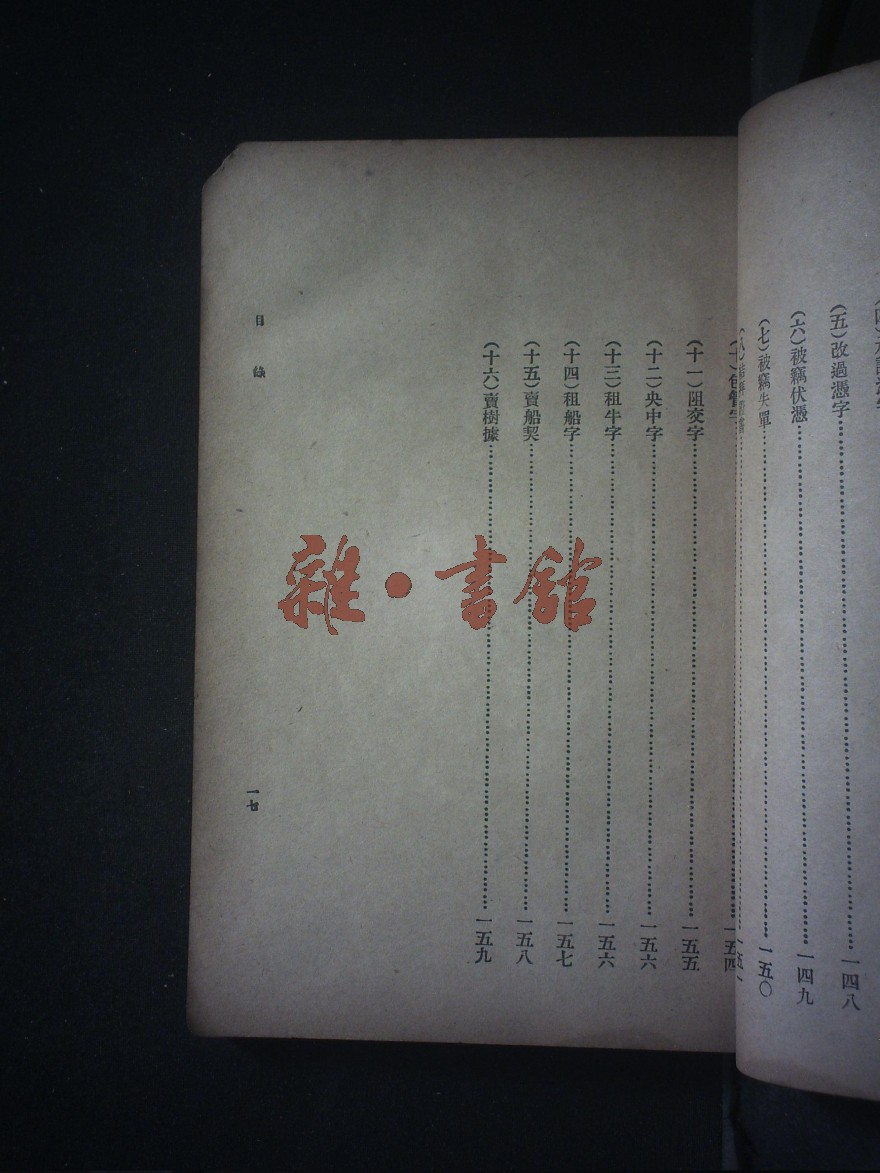 (五)改過憑字……一四八
(六)被竊伏憑……一四九
(七)被竊失單……一五〇
(十一)阻交字……一五五
(十二)央中字……一五六
(十三)租牛字……一五六
(十四)租船字……一五七
(十五)賣船契……一五八
(十六)賣樹據……一五九
目錄
一七
雜·書館